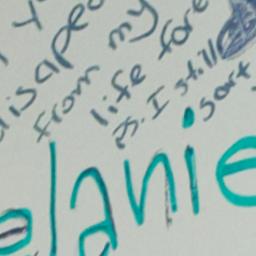 disapea
from my
life fore
ps. I still
sort
elanie